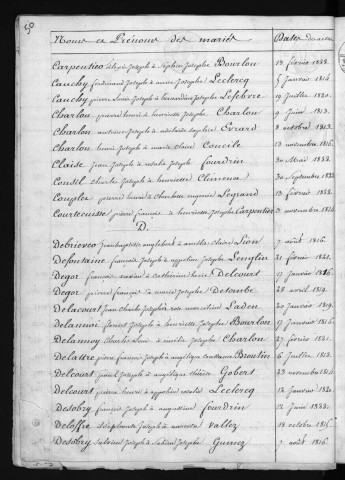 Noms et Prénoms des mariés Dates des actes
Carpentier Joseph à Sophie Josephe Bourlon 13 février 1822.
Cauchy ferdinand Joseph à anne Joseph Leclercq 5 Janvier 1814.
Cauchy pierre Louis Joseph à bernardine Josephe Lefebvre 19 Juillet 1820.
Charlon pierre henri à henriette Josephe Charlon 9 Juin 1813.
Charlon Joseph à adelaïde Josephe Evrard 8 octobre 1813.
Charlon Louis Joseph à marie claire Concile 13 novembre 1816.
Claise Jean Joseph à rosalie Josephe fourdrin 30 Mai 1822.
Consil Charles Joseph à henriette 30 Septembre 1822.
Couplez pierre henri à eugenie Legrand 13 février 1822.
Courtecuisse pierre françois à henriette Josephe Carpentier 3 novembre 1814
D.
Debrievco Jean baptiste englebert à amélie claire Lion 7 août 1816.
Defontaine françois Joseph à appoline Josephe Lenglin 21 février 1821.
Degor françois xavier à catherine Delcourt 17 janvier 1816
Degor pierre françois à marie Josephe 28 avril 1819.
Delacourt Jean charles à rose marceline Laden 20 janvier 1819.
Delannoi florent Joseph à henriette Josephe Bourlon 17 janvier 1816.
Delannoy Charles Louis à Josephe Charlon 27 février 1821.
Delattre pierre françois Joseph à angélique constance Broutin 6 Juillet 1813.
Delcourt Joseph à angélique Gobert 23 novembre 1814
Delcourt pierre henri à appoline rosalie Leclercq 12 Janvier 1820.
Desobry françois Joseph à augustine fourdrin 12 Juin 1822.
Deloffre Joseph à Vallez 18 octobre 1815.
Desobry Joseph à Josephe Guinez 7 août 1816.